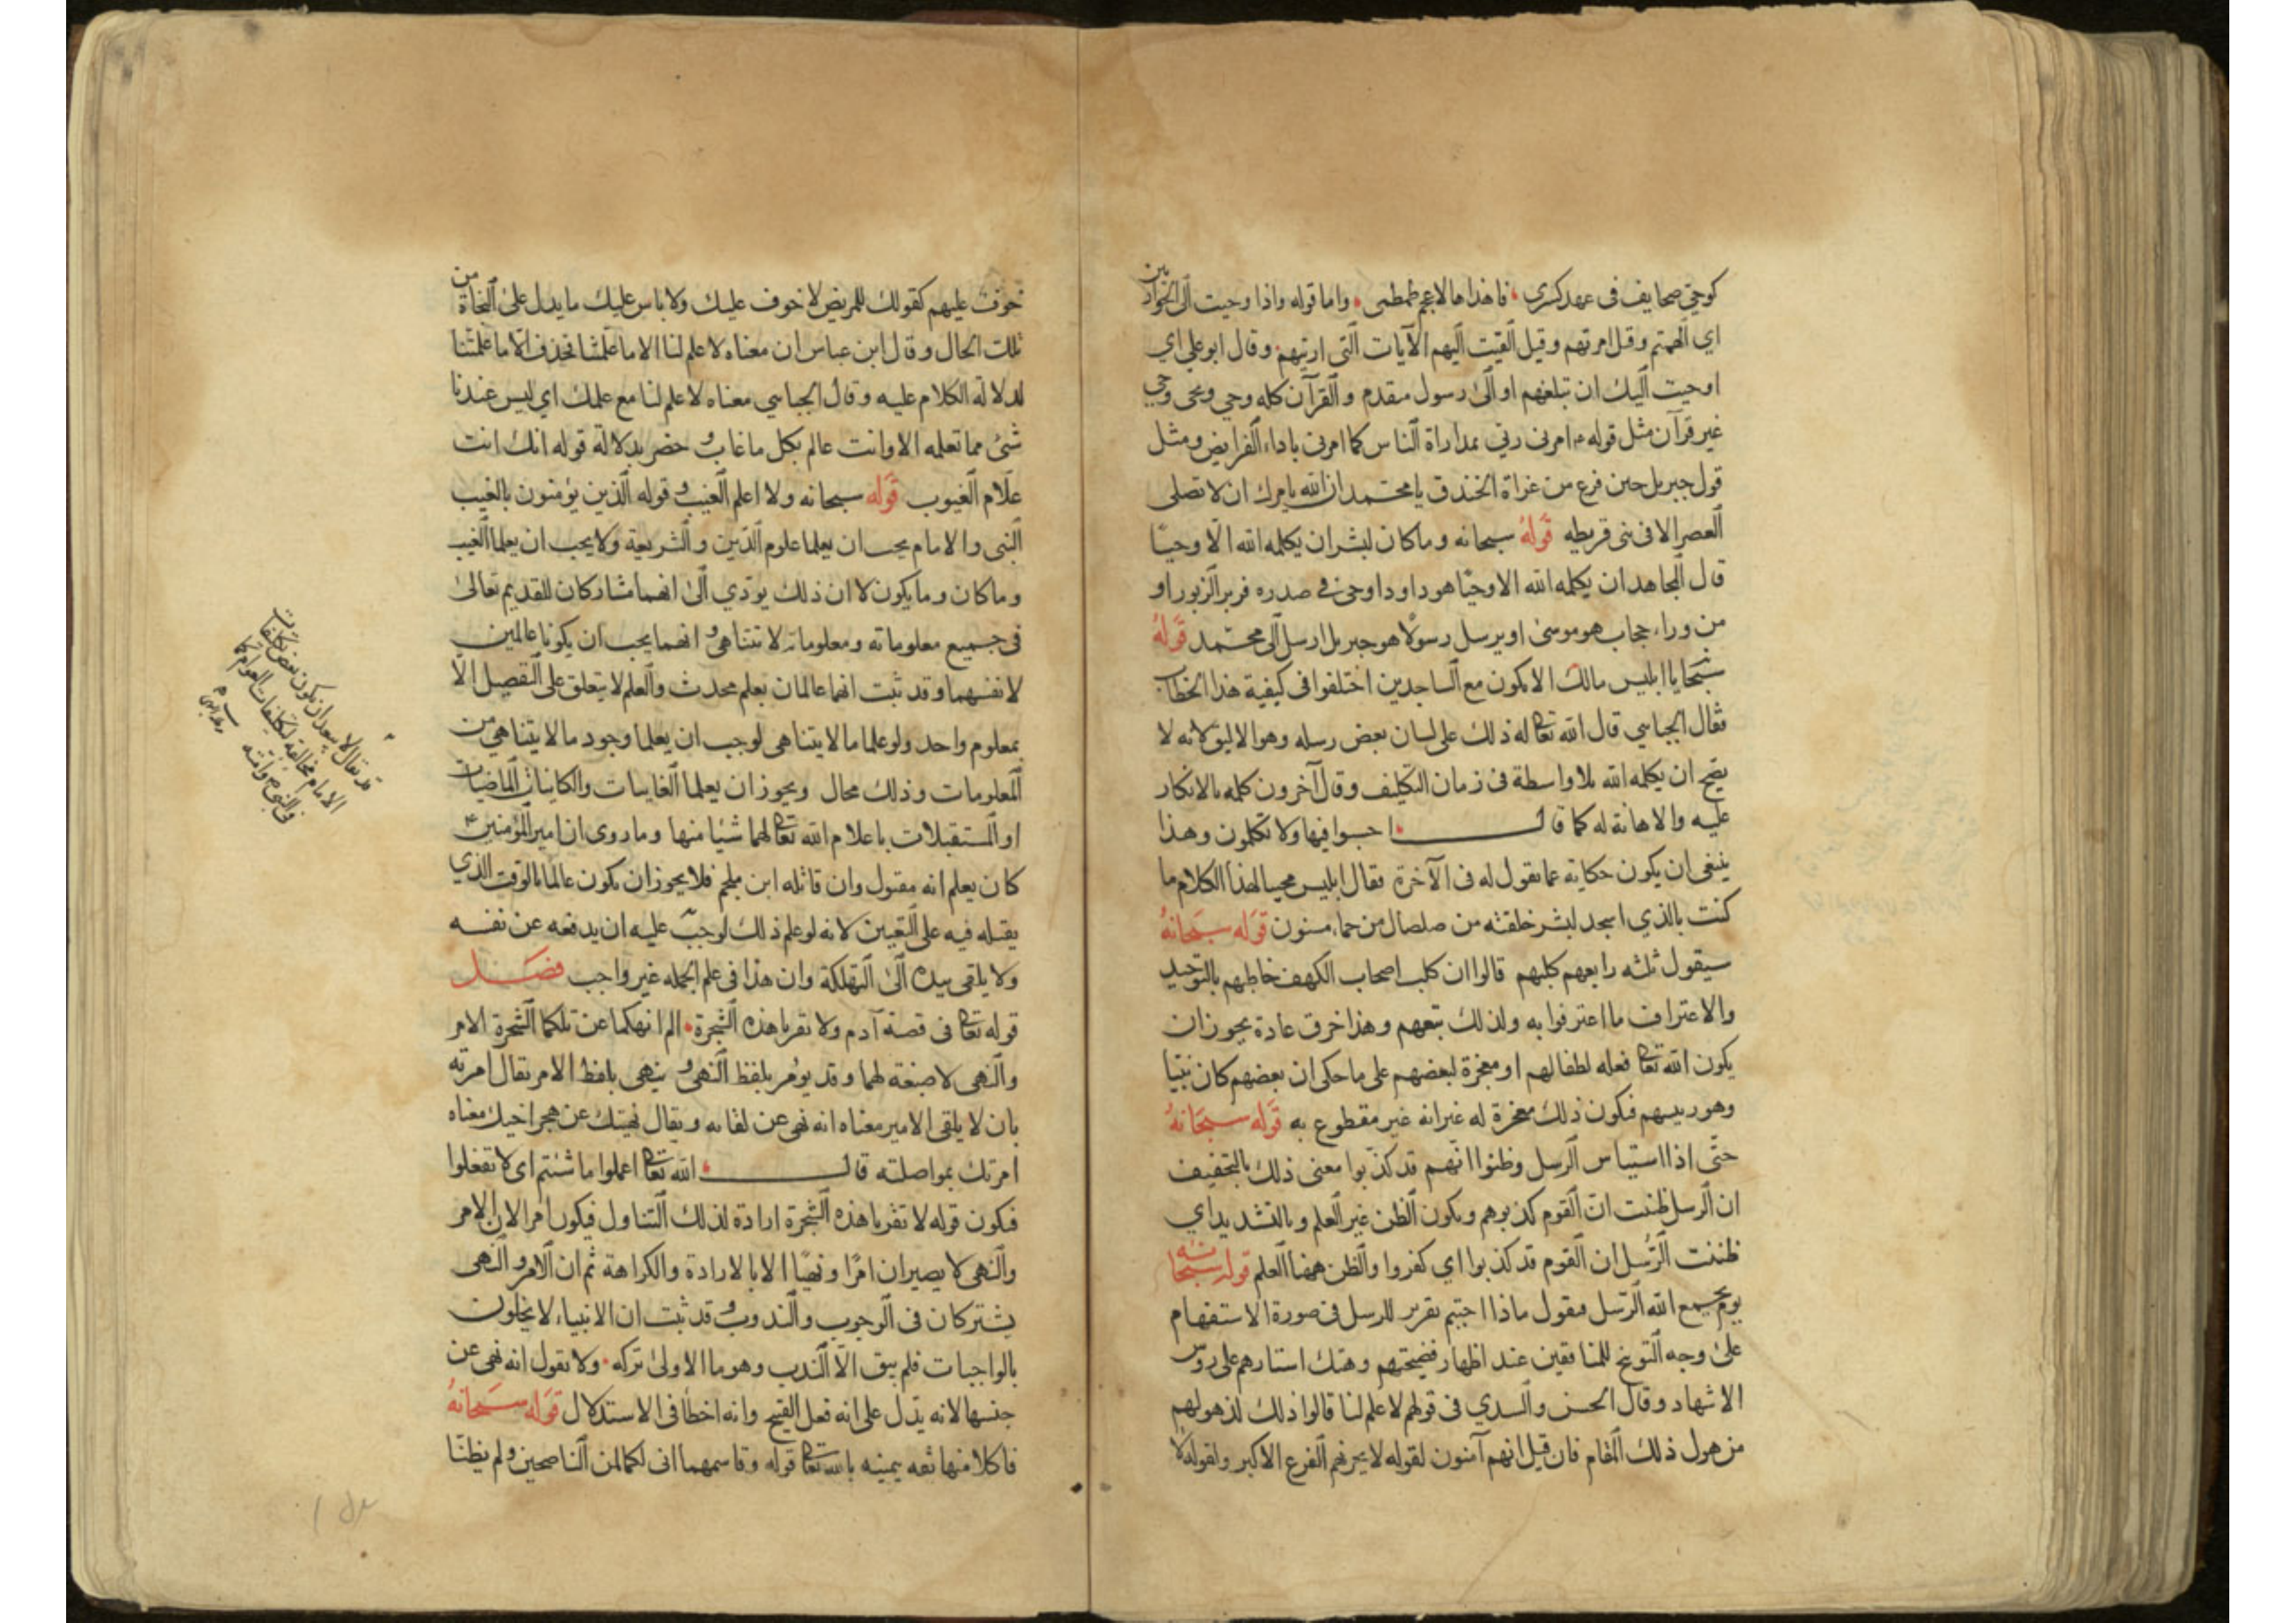 كوحي صحايف فى عهد كسرى فاهداها لاعجم طمطمى واما قوله واذا وحيت الى الحوارين
اي الهمتهم وقيل امرتهم وقيل القيت اليهم الآيات التى اريتهم وقال ابو على اي
اوحيت اليك ان تبلغهم او الى رسول متقدم والقرآن كله وحي ويحى وحي
غير قرآن مثل قوله امرنى ربي بمداراة الناس كما امرنى باداء الفرايض ومثل
قول جبريل حين فرغ من غزاة الخندق يا محمد ان الله يامرك ان لا تصلى
العصر الا فى بنى قريطه قوله سبحانه وما كان لبشر ان يكلمه الله الا وحيا
قال المجاهد ان يكلمه الله الا وحيا هو داود اوحى في صدره فزبر الزبور او
من وراء حجاب هو موسى او يرسل رسولا هو جبريل ارسل الى محمد قوله
سبحا يا ابليس مالك الا تكون مع الساجدين اختلفوا فى كيفية هذا الخطاب
فقال الجباىي قال الله تعا له ذلك على لسان بعض رسله وهو الاليق لانه لا
يصح ان يكلمه الله بلا واسطة فى زمان التكليف وقال آخرون كلمه بالانكار
عليه والاهانة له كما قال اخسوا فيها ولا تكلمون وهذا
ينبغى ان يكون حكاية عما يقول له فى الآخرة فقال ابليس مجيبا لهذا الكلام ما
كنت بالذي اسجد لبشر خلقته من صلصال من حماء مسنون قوله سبحانه
سيقول ثلثه رابعهم كلبهم قالوا ان كلب اصحاب الكهف خاطبهم بالتوحيد
والاعتراف ما اعترفوا به ولذلك تبعهم وهذا خرق عادة يجوز ان
يكون الله تعا فعله لطفا لهم او معجزة لبعضهم على ما حكى ان بعضهم كان نبيا
وهو رييسهم فيكون ذلك معجزة له غير انه غير مقطوع به قوله سبحانه
حتى اذا استياس الرسل وظنوا انهم قد كذبوا معنى ذلك بالتخفيف
ان الرسل ظنت ان القوم كذبوهم ويكون الظن غير العلم وبالتشديد اي
ظننت الرسل ان القوم قد كذبوا اي كفروا والظن ههنا العلم قوله سبحانه
يوم يجمع الله الرسل فيقول ماذا اجبتم تقرير للرسل فى صورة الاستفهام
على وجه التوبيخ للمنافقين عند اظهار فضيحتهم وهتك استارهم على روس
الاشهاد وقال الحسن والسدي فى قولهم لا علم لنا قالوا ذلك لذهولهم
من هول ذلك المقام فان قيل انهم آمنون لقوله لا يحزنهم الفزع الاكبر ولقوله لا
خوف عليهم كقولك للمريض لا خوف عليك ولا باس عليك ما يدل على النجاة من
تلك الحال وقال ابن عباس ان معناه لا علم لنا الا ما علمتنا فحذف الا ما علمتنا
لدلالة الكلام عليه وقال الجباىي معناه لا علم لنا مع علمك اي ليس عندنا
شئ مما تعلمه الا وانت عالم بكل ما غاب و حضر بدلالة قوله انك انت
علام الغيوب قوله سبحانه ولا اعلم الغيب و قوله الذين يؤمنون بالغيب
النبى والامام يجب ان يعلما علوم الدين والشريعة ولا يجب ان يعلما الغيب
وما كان وما يكون لا ان ذلك يؤدي الى انهما مشاركان للقديم تعالى
فى جميع معلوماته ومعلوماته لا تتناهى و انهما يجب ان يكونا عالمين
لانفسهما وقد ثبت انهما عالمان بعلم محدث والعلم لا يتعلق على التفصيل الا
بمعلوم واحد ولو علما ما لا يتناهى لوجب ان يعلما وجود ما لا يتناهى من
المعلومات وذلك محال ويجوز ان يعلما الغايبات والكاينات الماضيات
او المستقبلات باعلام الله تعا لهما شيئا منها وما روى ان امير المؤمنين ع
كان يعلم انه مقتول وان قاتله ابن ملجم فلا يجوز ان يكون عالما بالوقت الذي
يقتله فيه على التعيين لانه لو علم ذلك لوجب عليه ان يدفعه عن نفسه
ولا يلقى بيده الى التهلكة وان هذا فى علم الجمله غير واجب فصل
قوله تعا فى قصة آدم ولا تقربا هذه الشجرة الم انهكما عن تلكما الشجرة الامر
والنهى لا صيغة لهما وقد يؤمر بلفظ النهى و ينهى بلفظ الامر يقال امرته
بان لا يلقى الامير معناه انه نهى عن لقائه ويقال نهيتك عن هجر اخيك معناه
امرتك بمواصلته قال الله تعا اعملوا ما شئتم اى لا تفعلوا
فيكون قوله لا تقربا هذه الشجرة ارادة لذلك التناول فيكون امرا لان الامر
والنهى لا يصيران امرا ونهيا الا بالارادة والكراهة ثم ان الامر و النهى
يشتركان فى الوجوب والندوب و قد ثبت ان الانبياء لا يخلون
بالواجبات فلم يبق الا الندب وهو ما الاولى تركه ولا نقول انه نهى عن
جنسها لانه يدل على انه فعل القبيح وانه اخطأ فى الاستدلال قوله سبحانه
فاكلا منها ثقه بيمينه بالله تعا قوله وقاسمهما انى لكما لمن الناصحين ولم يظنا
قد يقال لا يبعد ان يكون بعض تكليفات
الامام مخالفة لتكليفات العوام كما
فى النبي وامته